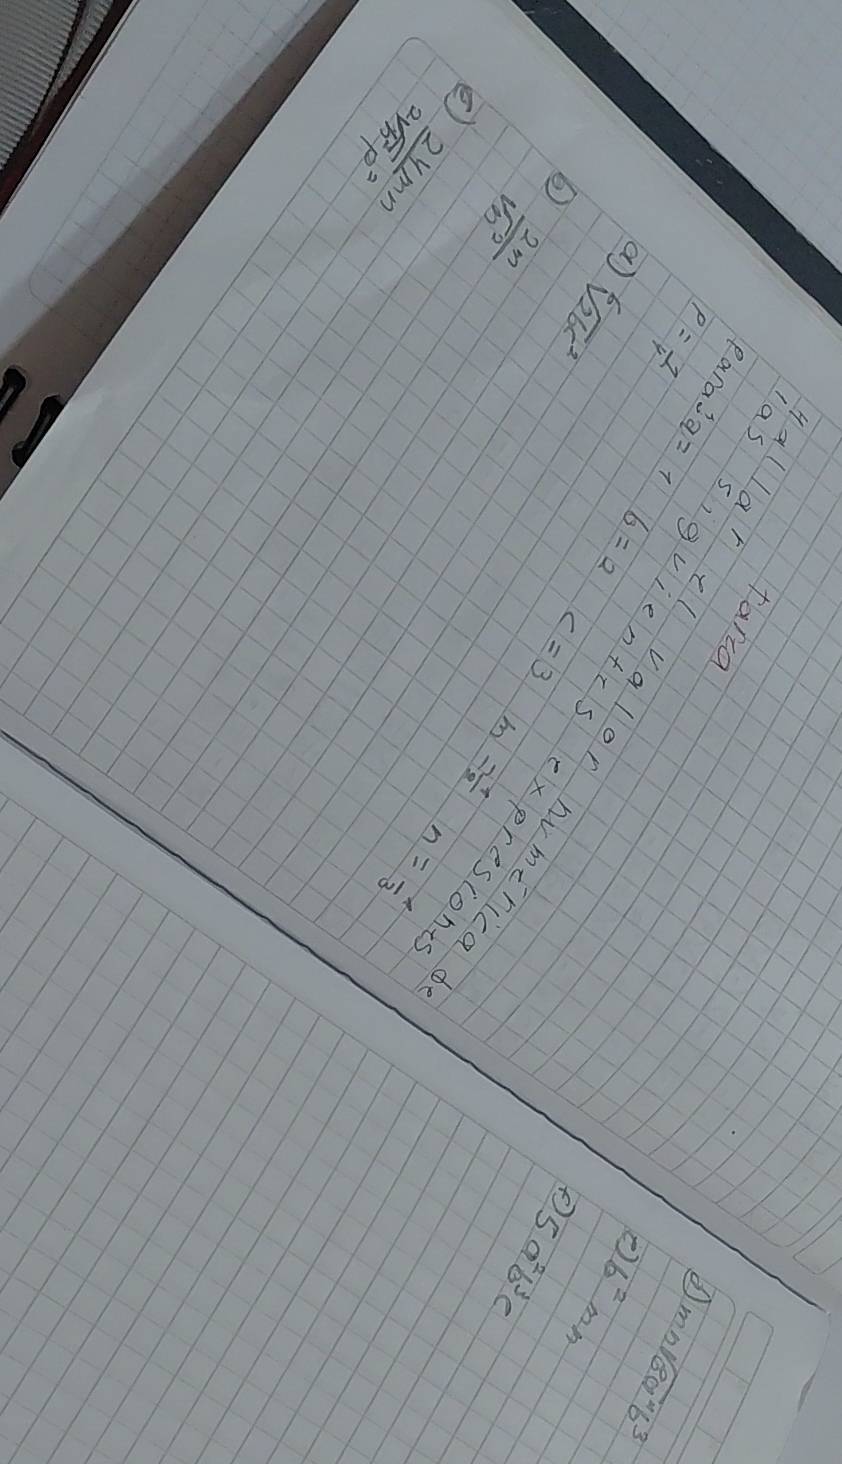 tarea
Hallar el vallor numérica de
las siguientes expresiones
para: a = 1 b = 2 c = 3 m = 1/2 n = 1/3
p = 1/4
a) ⁶√2bc²
b) 2m/√n²
c) 24mn/2√n²p²
d) mn√8a⁴b³
e) b² mn
f) 5a²b³c